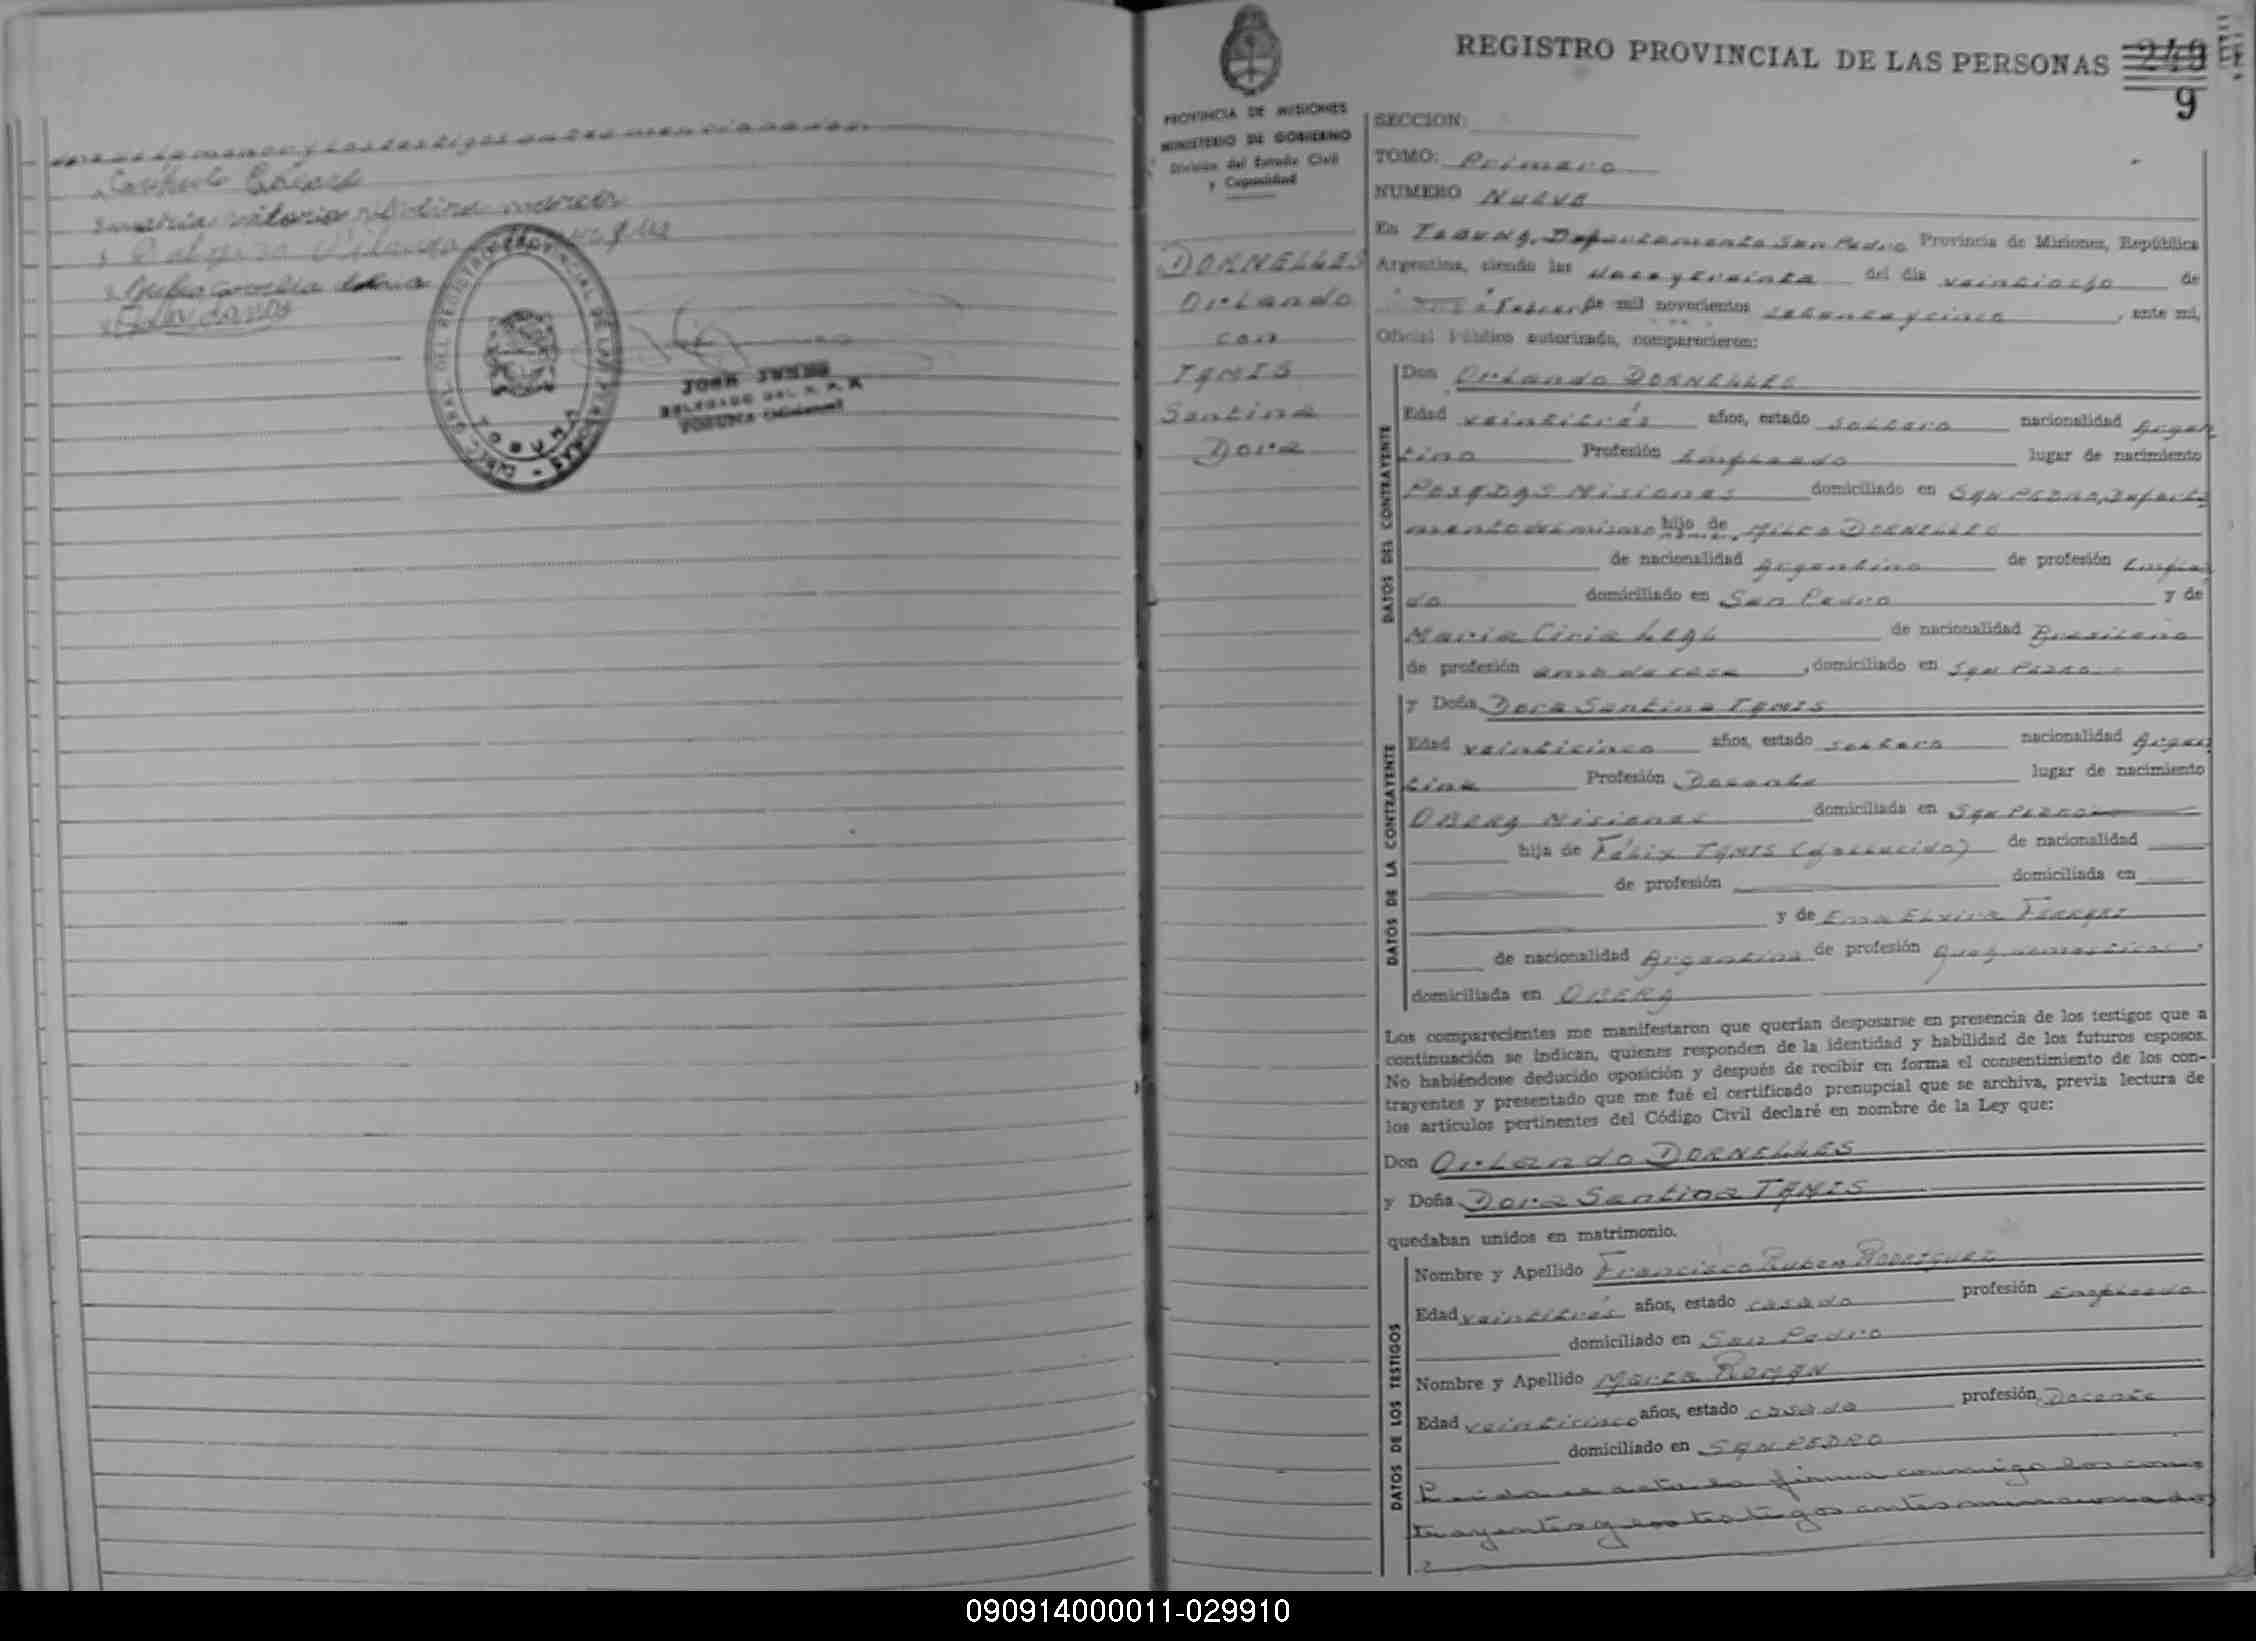 y los testigos antes mencionados.
DIREC. GRAL. DEL REGISTRO PROVINCIAL DE LAS PERSONAS -
TOBUNA
DELEGADO DEL R. P. P.
TOBUNA (Misiones)
REGISTRO PROVINCIAL DE LAS PERSONAS 249
9
PROVINCIA DE MISIONES
MINISTERIO DE GOBIERNO
División del Estado Civil
y Capacidad
DORNELLES
Orlando
con
TAMIS
Santina
Dora
SECCION:
TOMO: Primero
NUMERO Nueve
En TOBUNA, Departamento San Pedro Provincia de Misiones, República
Argentina, siendo las doce y treinta del día veintiocho de
Febrero de mil novecientos setenta y cinco, ante mi,
Oficial Público autorizado, comparecieron:
DATOS DEL CONTRAYENTE
Don Orlando DORNELLES
Edad veintitrés años, estado soltero nacionalidad Argen
tino Profesión Empleado lugar de nacimiento
POSADAS Misiones domiciliado en SAN PEDRO, Departa
mento del mismo hijo de DORNELLES
de nacionalidad Argentino de profesión Emplea
do domiciliado en San Pedro y de
Maria LEAL de nacionalidad Brasileña
de profesión ama de casa, domiciliado en SAN PEDRO
DATOS DE LA CONTRAYENTE
y Doña Dora Santina TAMIS
Edad veinticinco años, estado soltera nacionalidad Argen
tina Profesión Docente lugar de nacimiento
OBERA Misiones domiciliada en SAN PEDRO
hija de Félix TAMIS (fallecido) de nacionalidad
de profesión domiciliada en
y de Ema Elvira
de nacionalidad Argentina de profesión
domiciliada en OBERA
Los comparecientes me manifestaron que querían desposarse en presencia de los testigos que a
continuación se indican, quienes responden de la identidad y habilidad de los futuros esposos.
No habiéndose deducido oposición y después de recibir en forma el consentimiento de los con-
trayentes y presentado que me fué el certificado prenupcial que se archiva, previa lectura de
los artículos pertinentes del Código Civil declaré en nombre de la Ley que:
Don Orlando DORNELLES
y Doña Dora Santina TAMIS
quedaban unidos en matrimonio.
DATOS DE LOS TESTIGOS
Nombre y Apellido Francisco Ruben RODRIGUEZ
Edad veintitrés años, estado casado profesión Empleado
domiciliado en San Pedro
Nombre y Apellido ROMAN
Edad veinticinco años, estado casado profesión Docente
domiciliado en SAN PEDRO
Leida el acta la firma conmigo los con
trayentes y los testigos antes mencionados
090914000011-029910